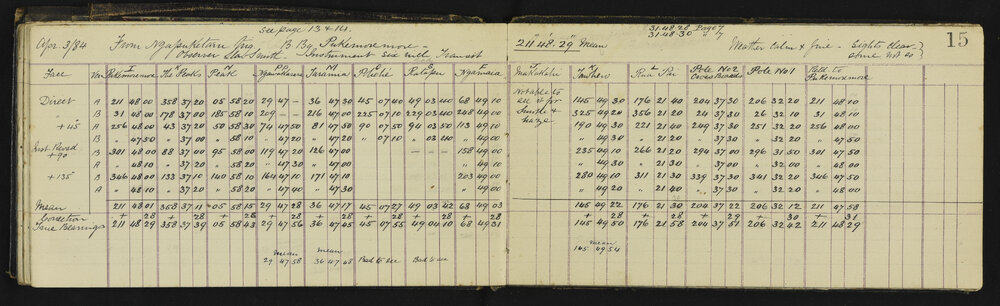 See page 13 & 14.
31.48.28 Page 7
31.48.30 " 7
15
Apr. 3/84 From Ngapuketurua Trig B. By Pukemoremore = 211° 48' 29" Mean Weather Calm & fine - Sights clear
Observer Stn. Smith - Instrument six inch Transit some not so
Face Ver Pukemoremore The Peaks Peak Ngawakaraua Taramea Rotapu Ngamaea Makakahi Rua Pai Pole No 2 Cross Roads Pole No 1 Held to Pukemoremore
Direct A 211 48 00 358 37 20 05 58 20 29 47 — 36 47 30 45 07 40 49 03 40 68 49 10 Not able to 145 49 30 176 21 40 204 37 30 206 32 20 211 48 10
" B 31 48 00 178 37 00 185 58 10 209 — — 216 47 00 225 07 10 229 03 40 248 49 00 see it for 325 49 20 356 21 20 24 37 30 26 32 10 31 48 10
+45° A 256 48 00 43 37 20 50 58 30 74 47 50 81 47 30 90 07 50 94 03 50 113 49 10 smoke & 190 49 30 221 21 40 249 37 30 251 32 20 256 48 00
B " 47 50 " 37 00 " 58 10 " 47 20 " 47 00 " 07 10 " 03 40 " 49 00 haze " 49 30 " 21 20 " 37 30 " 32 00 " 47 50
+90 B 301 48 00 88 37 00 95 58 00 119 47 20 126 47 00 — — — 158 49 00 235 49 10 266 21 20 294 37 00 296 31 50 301 47 50
A " 48 10 " 37 20 " 58 20 " 47 30 " 47 00 " 49 10 " 49 30 " 21 30 " 37 30 " 32 00 " 48 00
+135° B 346 48 00 133 37 10 140 58 10 164 47 10 171 47 10 203 49 00 280 49 10 311 21 30 339 37 30 341 32 20 346 47 50
A " 48 10 " 37 20 " 58 20 " 47 40 " 47 30 " " 49 00 " 49 20 " 21 40 " 37 30 " 32 20 " 48 00
Mean 211 48 01 358 37 11 05 58 15 29 47 28 36 47 17 45 07 27 49 03 42 68 49 03 145 49 22 176 21 30 204 37 22 206 32 12 211 47 58
Correction + 28 + 28 + 28 + 28 + 28 + 28 + 28 + 28 + 28 + 28 + 29 + 30 + 31
True Bearings 211 48 29 358 37 39 05 58 43 29 47 56 36 47 45 45 07 55 49 04 10 68 49 31 145 49 50 176 21 58 204 37 51 206 32 42 211 48 29
mean mean mean
29 47 58 36 47 48 Bad to see Bad to see 145 49 54